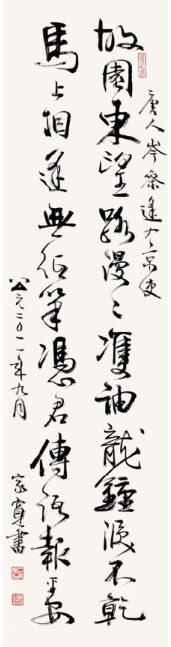 唐人岑參逢入京使
故園東望路漫〻雙袖龍鍾淚不乾
馬上相逢無紙筆憑君傳語報平安
公元二〇一一年九月
家寬書